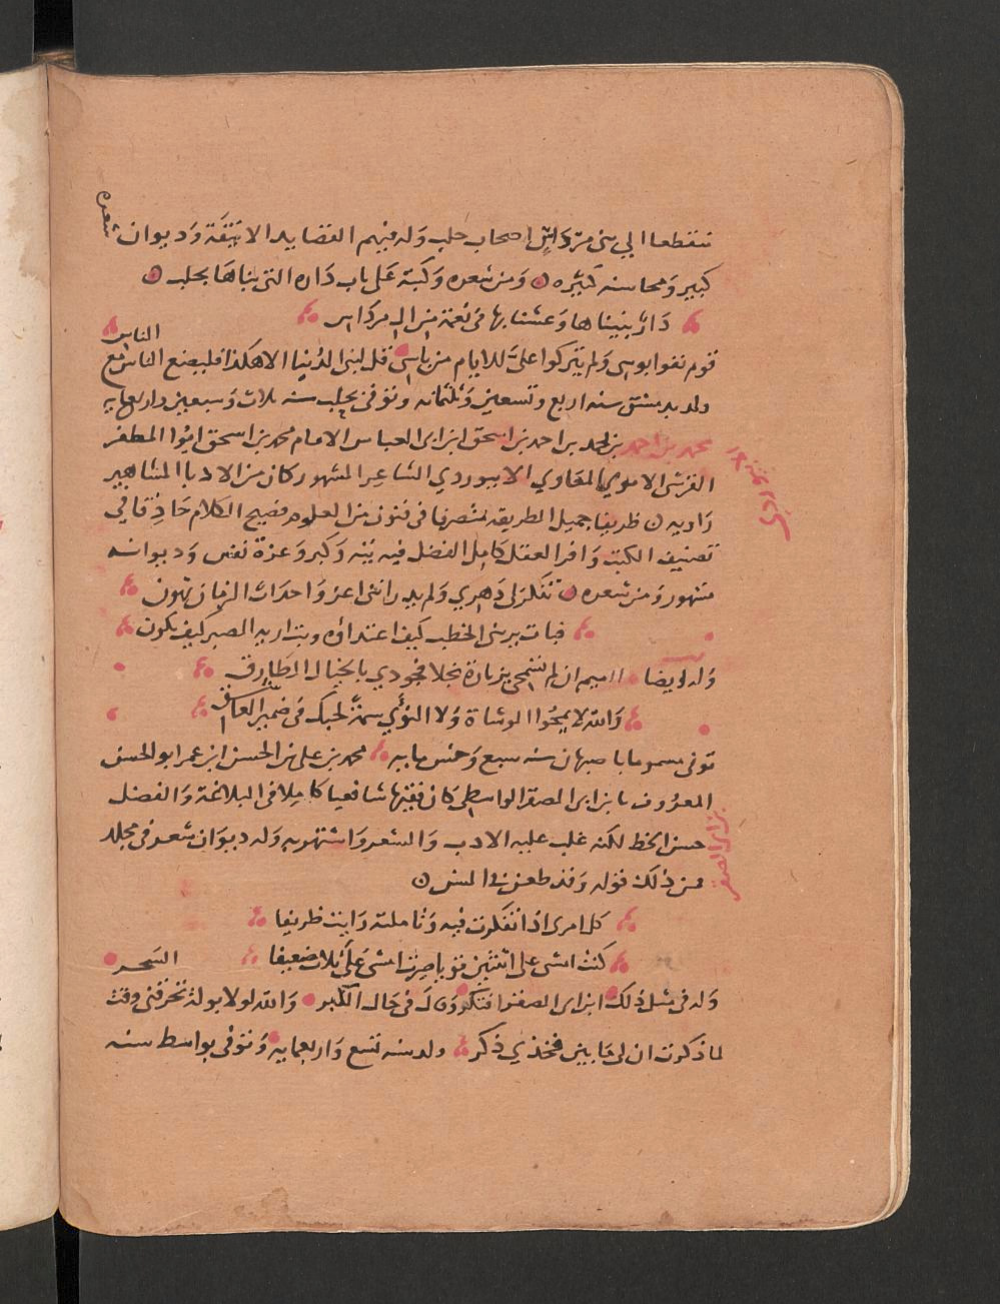 منقطعا الي بني مرداس اصحاب حلب وله فيهم القصايد الانيقة وديوان شعره
كبير ومحاسنه كثيره ومن شعره وكتبه على باب داره التى بناها بحلب
دار بنيناها وعشنا بها فى نعمة من ال مرداس
قوم نفوا بوسى ولم يتركوا علىّ للايام من باس قل لبنى الدنيا الا هكذا فليصنع الناس مع الناس
ولد بدمشق سنه اربع وتسعين وثلثمائه وتوفى بحلب سنه ثلاث وسبعين واربعمايه
محمد بن احمد بن محمد بن احمد بن اسحق ابن ابى العباس الامام محمد بن اسحق ابوا المظفر
القرشى الاموي المعاوي الابيوردي الشاعر المشهور كان من الادبا المشاهير
راويه ظريفا جميل الطريقه متصرفا فى فنون من العلوم فصيح الكلام حاذقا في
تصنيف الكتب وافر العقل كامل الفضل فيه تيه وكبر وعزة نفس وديوانه
مشهور ومن شعره تنكر لى دهري ولم يدر اننى اعز واحداث الزمان تهون
فبات يرينى الخطب كيف اعتداؤه وبت اريه الصبر كيف يكون
وله ايضا اميم ان لم تسمحى بزيارة بخلا فجودي بالخيال الطارق
والله لا يمحوا الوشاة ولا النوي سمة لحبك فى ضمير العاشق
توفى مسموما باصبهان سنه سبع وخمس مايه محمد بن على بن الحسن ابن عمر ابو الحسن
المعروف بابن ابى الصقر الواسطى كان فقيها شافعيا كاملا فى البلاغة والفضل
بن ابى الصقر
حسن الخط لكنه غلب عليه الادب والشعر واشتهر به وله ديوان شعر فى مجلد
فمن ذلك قوله وقد طعن فى السن
كل امرى اذا تفكرت فيه وتاملته رايت ظريفا
كنت امشى على اثنتين قويا صرت امشى على ثلاث ضعيفا
وله فى مثل ذلك ابن ابى الصقر افتكر وقال فى حال الكبر والله لولا بولة تحرقنى وقت السحر
لما ذكرت ان لى ما بين فخذي ذكر ولد سنه تسع واربعمايه وتوفى بواسط سنه